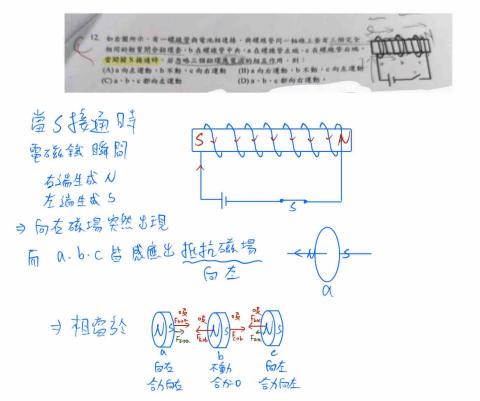 12. 如右圖所示，有一螺線管與電池相連接，與螺線管同一軸線上套有三個完全
相同的輕質閉合鋁環套，b 在螺線管中央，a 在螺線管左端，c 在螺線管右端，
當開關 S 接通時，若忽略三個鋁環感應電流的相互作用，則：
(A) a 向左運動，b 不動，c 向右運動 (B) a 向右運動，b 不動，c 向左運動
(C) a、b、c 都向左運動 (D) a、b、c 都向右運動。
當 S 接通時
電磁鐵瞬間
右端生成 N
左端生成 S
⇒ 向右磁場突然出現
而 a.b.c 皆感應出抵抗磁場
向左
S N
S
N S
a
⇒ 相當於
N S 吸 吸 N S 吸 吸 N S
a b c
向右 不動 向左
合力向右 合力=0 合力向左